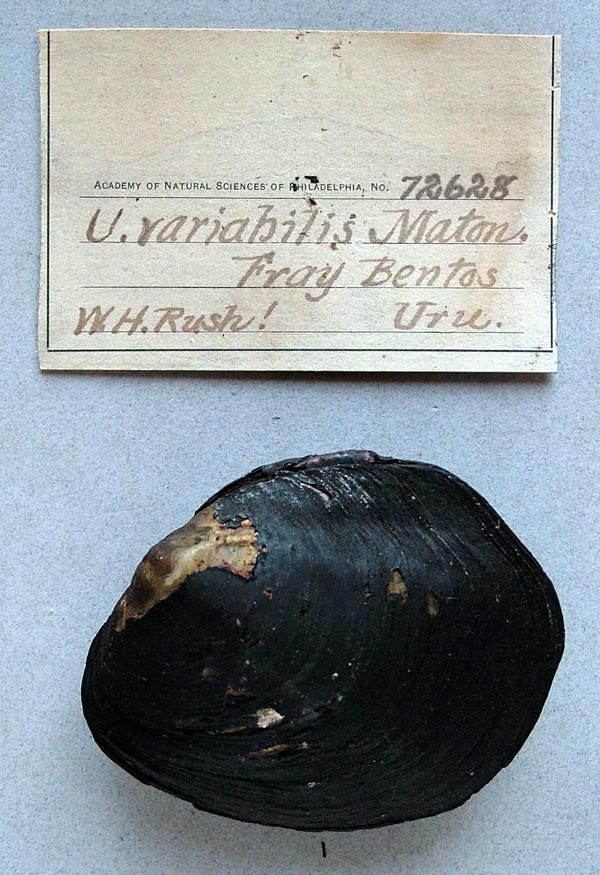 ACADEMY OF NATURAL SCIENCES OF PHILADELPHIA, NO. 72628
U. variabilis Maton.
Fray Bentos
W.H. Rush! Uru.